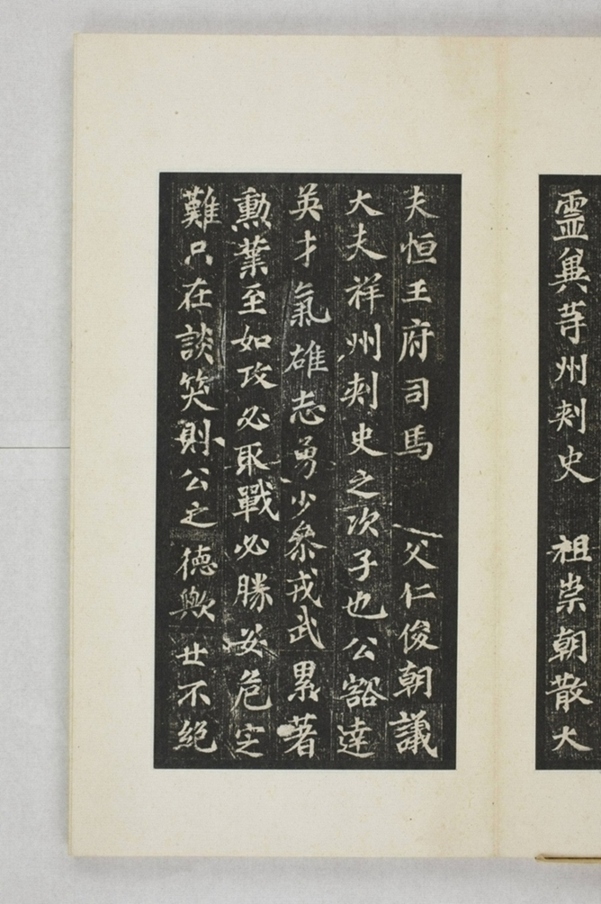 靈㠠等州刾史　祖崇朝散大
夫恒王府司馬　父仁俊朝議
大夫祥州刾史之次子也公豁達
英才氣雄志勇少叅戎武累著
勳業至如攻必取戰必勝安危定
難只在談笑則公之德歟世不絕